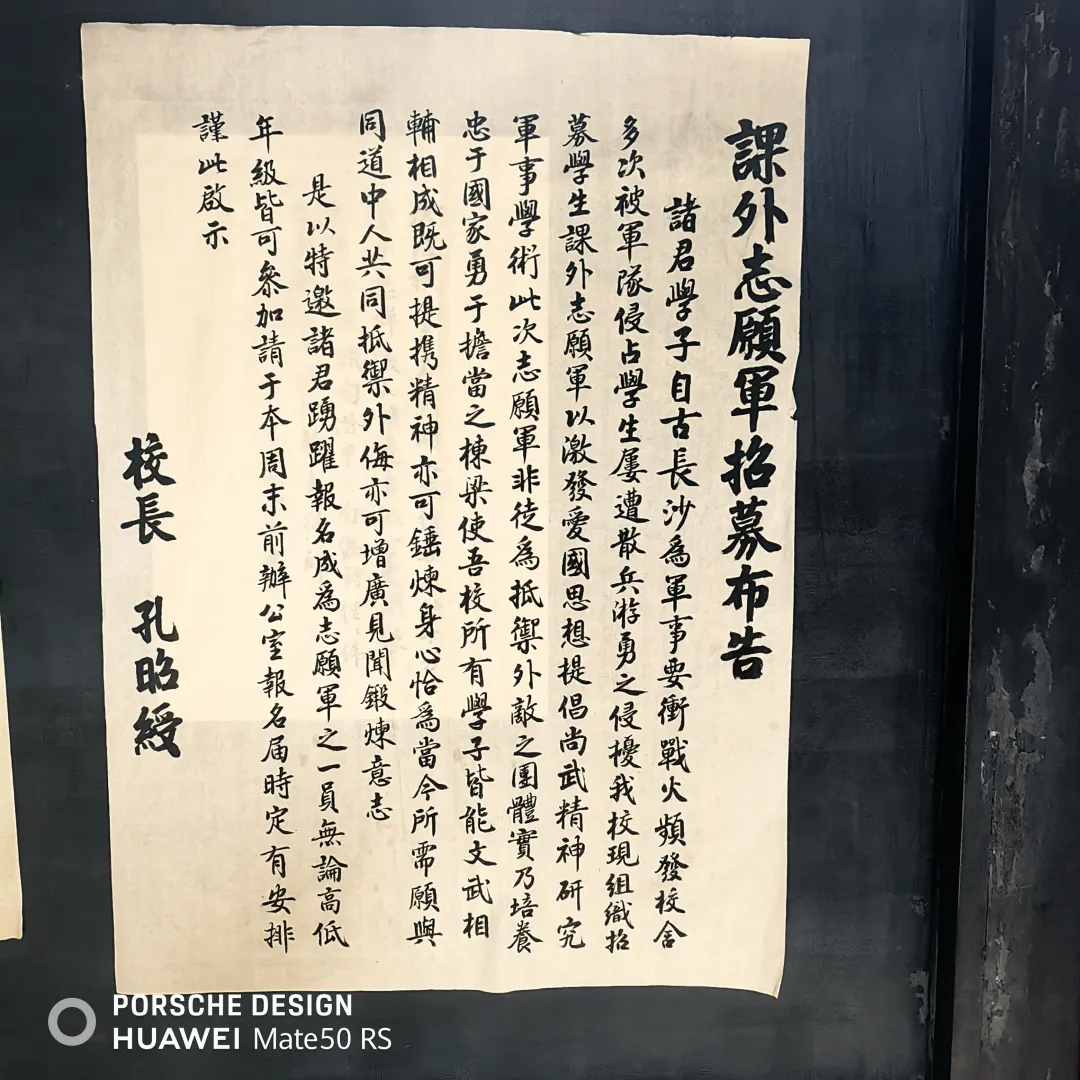 課外志願軍招募布告
諸君學子自古長沙爲軍事要衝戰火頻發校舍
多次被軍隊侵占學生屢遭散兵游勇之侵擾我校現組織招
募學生課外志願軍以激發愛國思想提倡尚武精神研究
軍事學術此次志願軍非徒爲抵禦外敵之團體實乃培養
忠于國家勇于擔當之棟梁使吾校所有學子皆能文武相
輔相成既可提携精神亦可錘煉身心恰爲當今所需願與
同道中人共同抵禦外侮亦可增廣見聞鍛煉意志
是以特邀諸君踴躍報名成爲志願軍之一員無論高低
年級皆可參加請于本周末前辦公室報名届時定有安排
謹此啟示
校長 孔昭綬
PORSCHE DESIGN
HUAWEI Mate50 RS